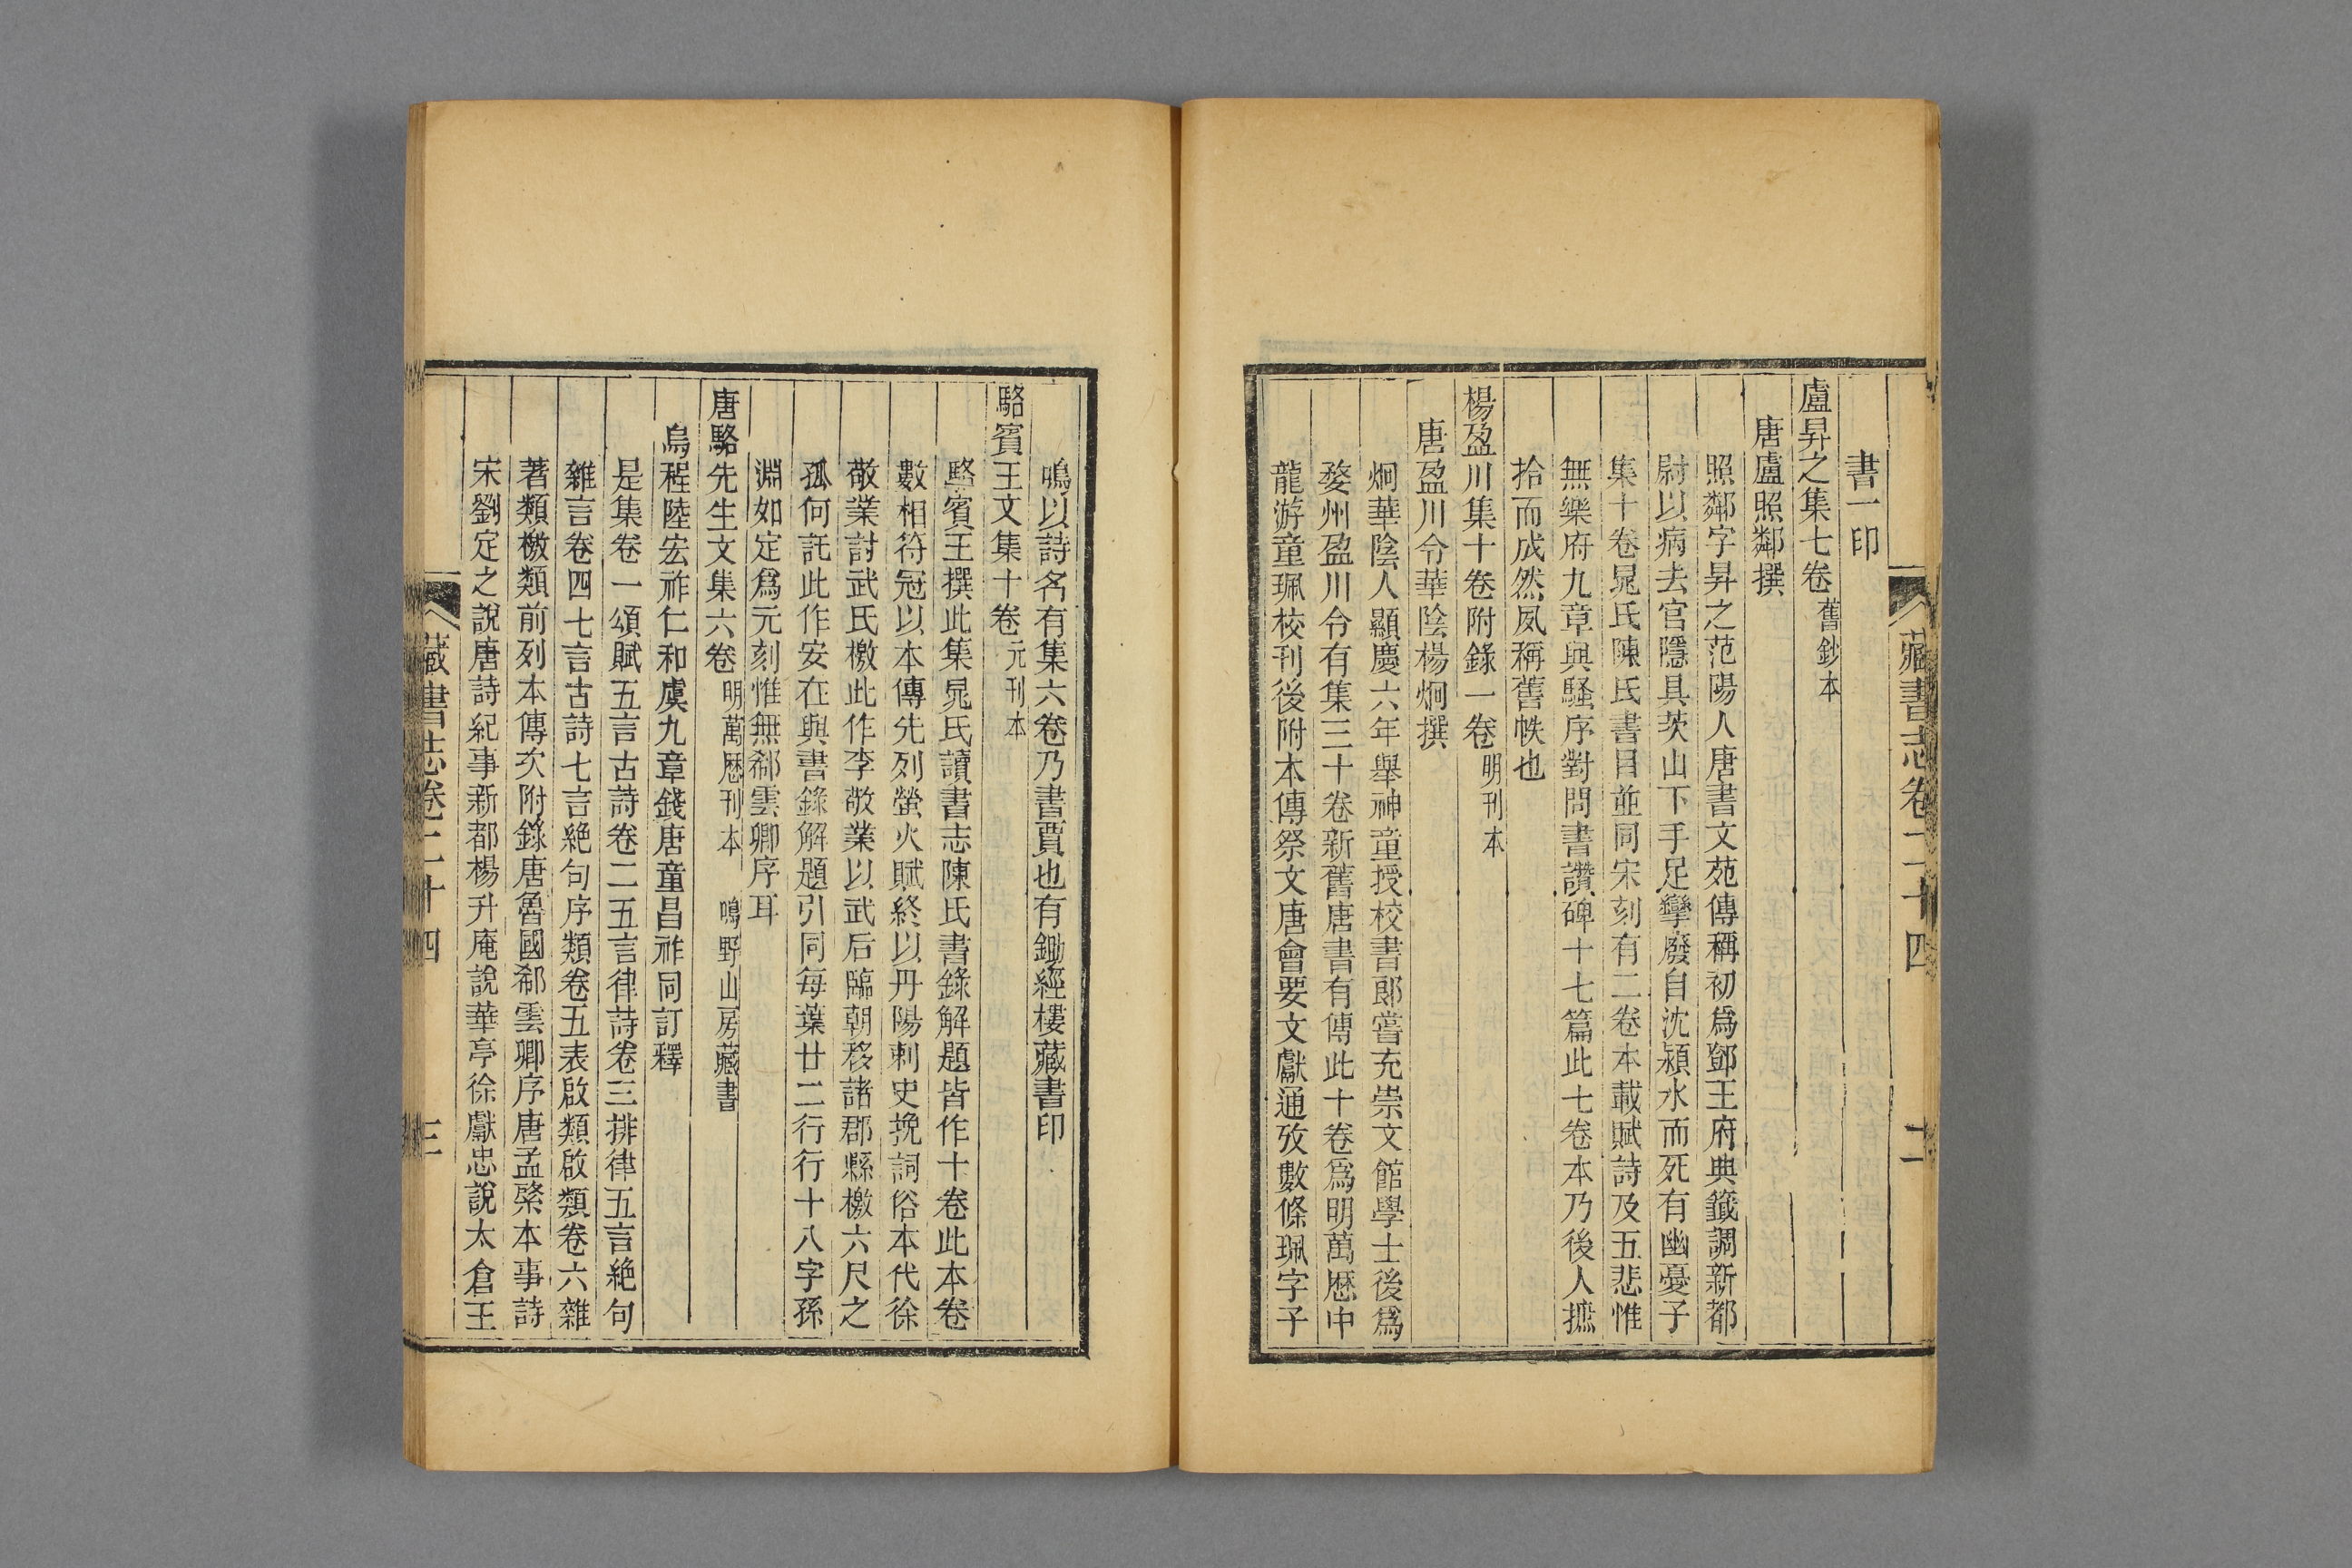 藏書志卷二十四
二
書一印
盧昇之集七卷舊鈔本
唐盧照鄰撰
照鄰字昇之范陽人唐書文苑傳稱初爲鄧王府典籤調新都
尉以病去官隱具茨山下手足攣廢自沈潁水而死有幽憂子
集十卷晁氏陳氏書目並同宋刻有二卷本載賦詩及五悲惟
無樂府九章與騷序對問書讚碑十七篇此七卷本乃後人摭
拾而成然夙稱舊帙也
楊盈川集十卷附錄一卷明刊本
唐盈川令華陰楊炯撰
炯華陰人顯慶六年舉神童授校書郎嘗充崇文館學士後爲
婺州盈川令有集三十卷新舊唐書有傳此十卷爲明萬歷中
龍游童珮校刊後附本傳祭文唐會要文獻通攷數條珮字子
鳴以詩名有集六卷乃書賈也有鋤經樓藏書印
駱賓王文集十卷元刊本
駱賓王撰此集晁氏讀書志陳氏書錄解題皆作十卷此本卷
數相符冠以本傳先列螢火賦終以丹陽刺史挽詞俗本代徐
敬業討武氏檄此作李敬業以武后臨朝移諸郡縣檄六尺之
孤何託此作安在與書錄解題引同每葉廿二行行十八字孫
淵如定爲元刻惟無郗雲卿序耳
唐駱先生文集六卷明萬歷刊本　鳴野山房藏書
烏程陸宏祚仁和虞九章錢唐童昌祚同訂釋
是集卷一頌賦五言古詩卷二五言律詩卷三排律五言絶句
雜言卷四七言古詩七言絶句序類卷五表啟類啟類卷六雜
著類檄類前列本傳次附錄唐魯國郗雲卿序唐孟棨本事詩
宋劉定之說唐詩紀事新都楊升庵說華亭徐獻忠說太倉王
藏書志卷二十四
三